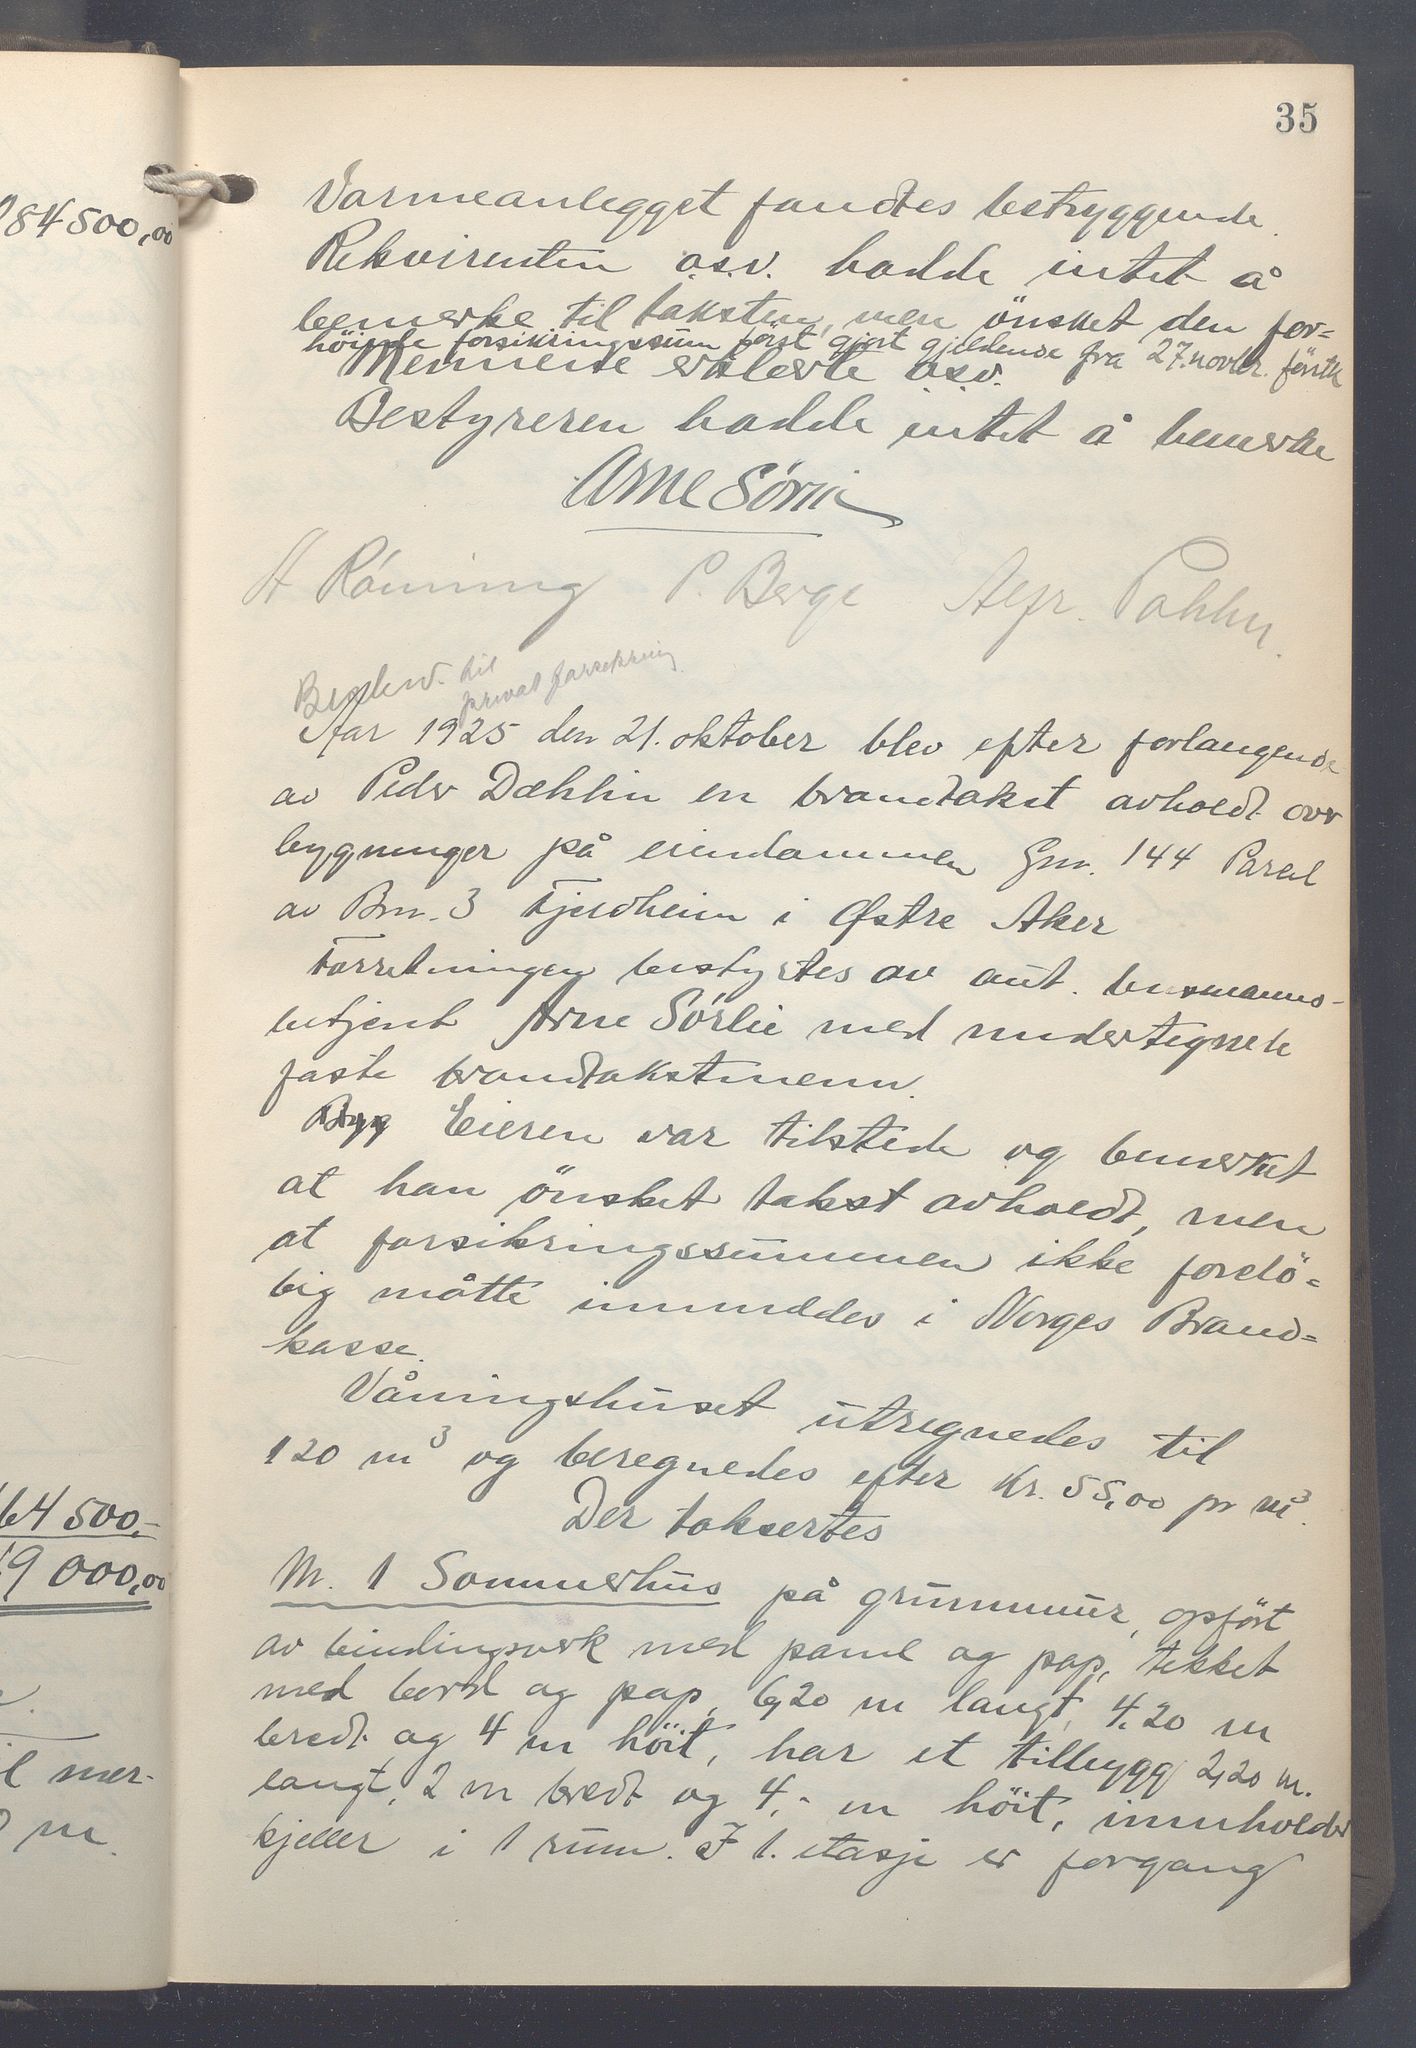 35
84500,00
Varmeanlegget fandtes betryggende.
Rekvirenten o.s.v. hadde intet å
bemerke til taksten, men önsket den for-
höiede forsikringssum först gjort gjeldende fra 27. novbr. førstk
Mennene erklerte o.s.v.
Bestyreren hadde intet å bemerke
Arne Sørlie
H Rónning P. Berge Alfr. Pahlm
Beskrev. til
privat forsikring
Aar 1925 den 21. oktober blev efter forlangende
av Peder Dæhlin en brandtakst avholdt over
bygninger på eiendommen Gnr. 144 Parcel
av Bnr. 3 Fjeldheim i Østre Aker
Forretningen bestyrtes av aut. lensmanns-
betjent Arne Sörlie med undertegnede
faste brandtakstmenn.
Bygg Eieren var tilstede og bemerket
at han önsket takst avholdt, men
at forsikringssummen ikke forelö-
big måtte innmeldes i Norges Brand-
kasse.
Våningshuset utregnedes til
120 m³ og beregnedes efter Kr. 55,00 pr m³.
Der taksertes
M. 1 Sommerhus på grunnmur, opfört
av bindingsverk med panel og pap, tekket
med bord og pap, 6,20 m langt, 4.20 m
bredt og 4 m höit, har et tilbygg 2,20 m.
langt, 2 m bredt og 4,- m höit, innholder
kjeller i 1 rum. I 1. etasje er forgang
64 500,-
9 000,00
l mer-
m.